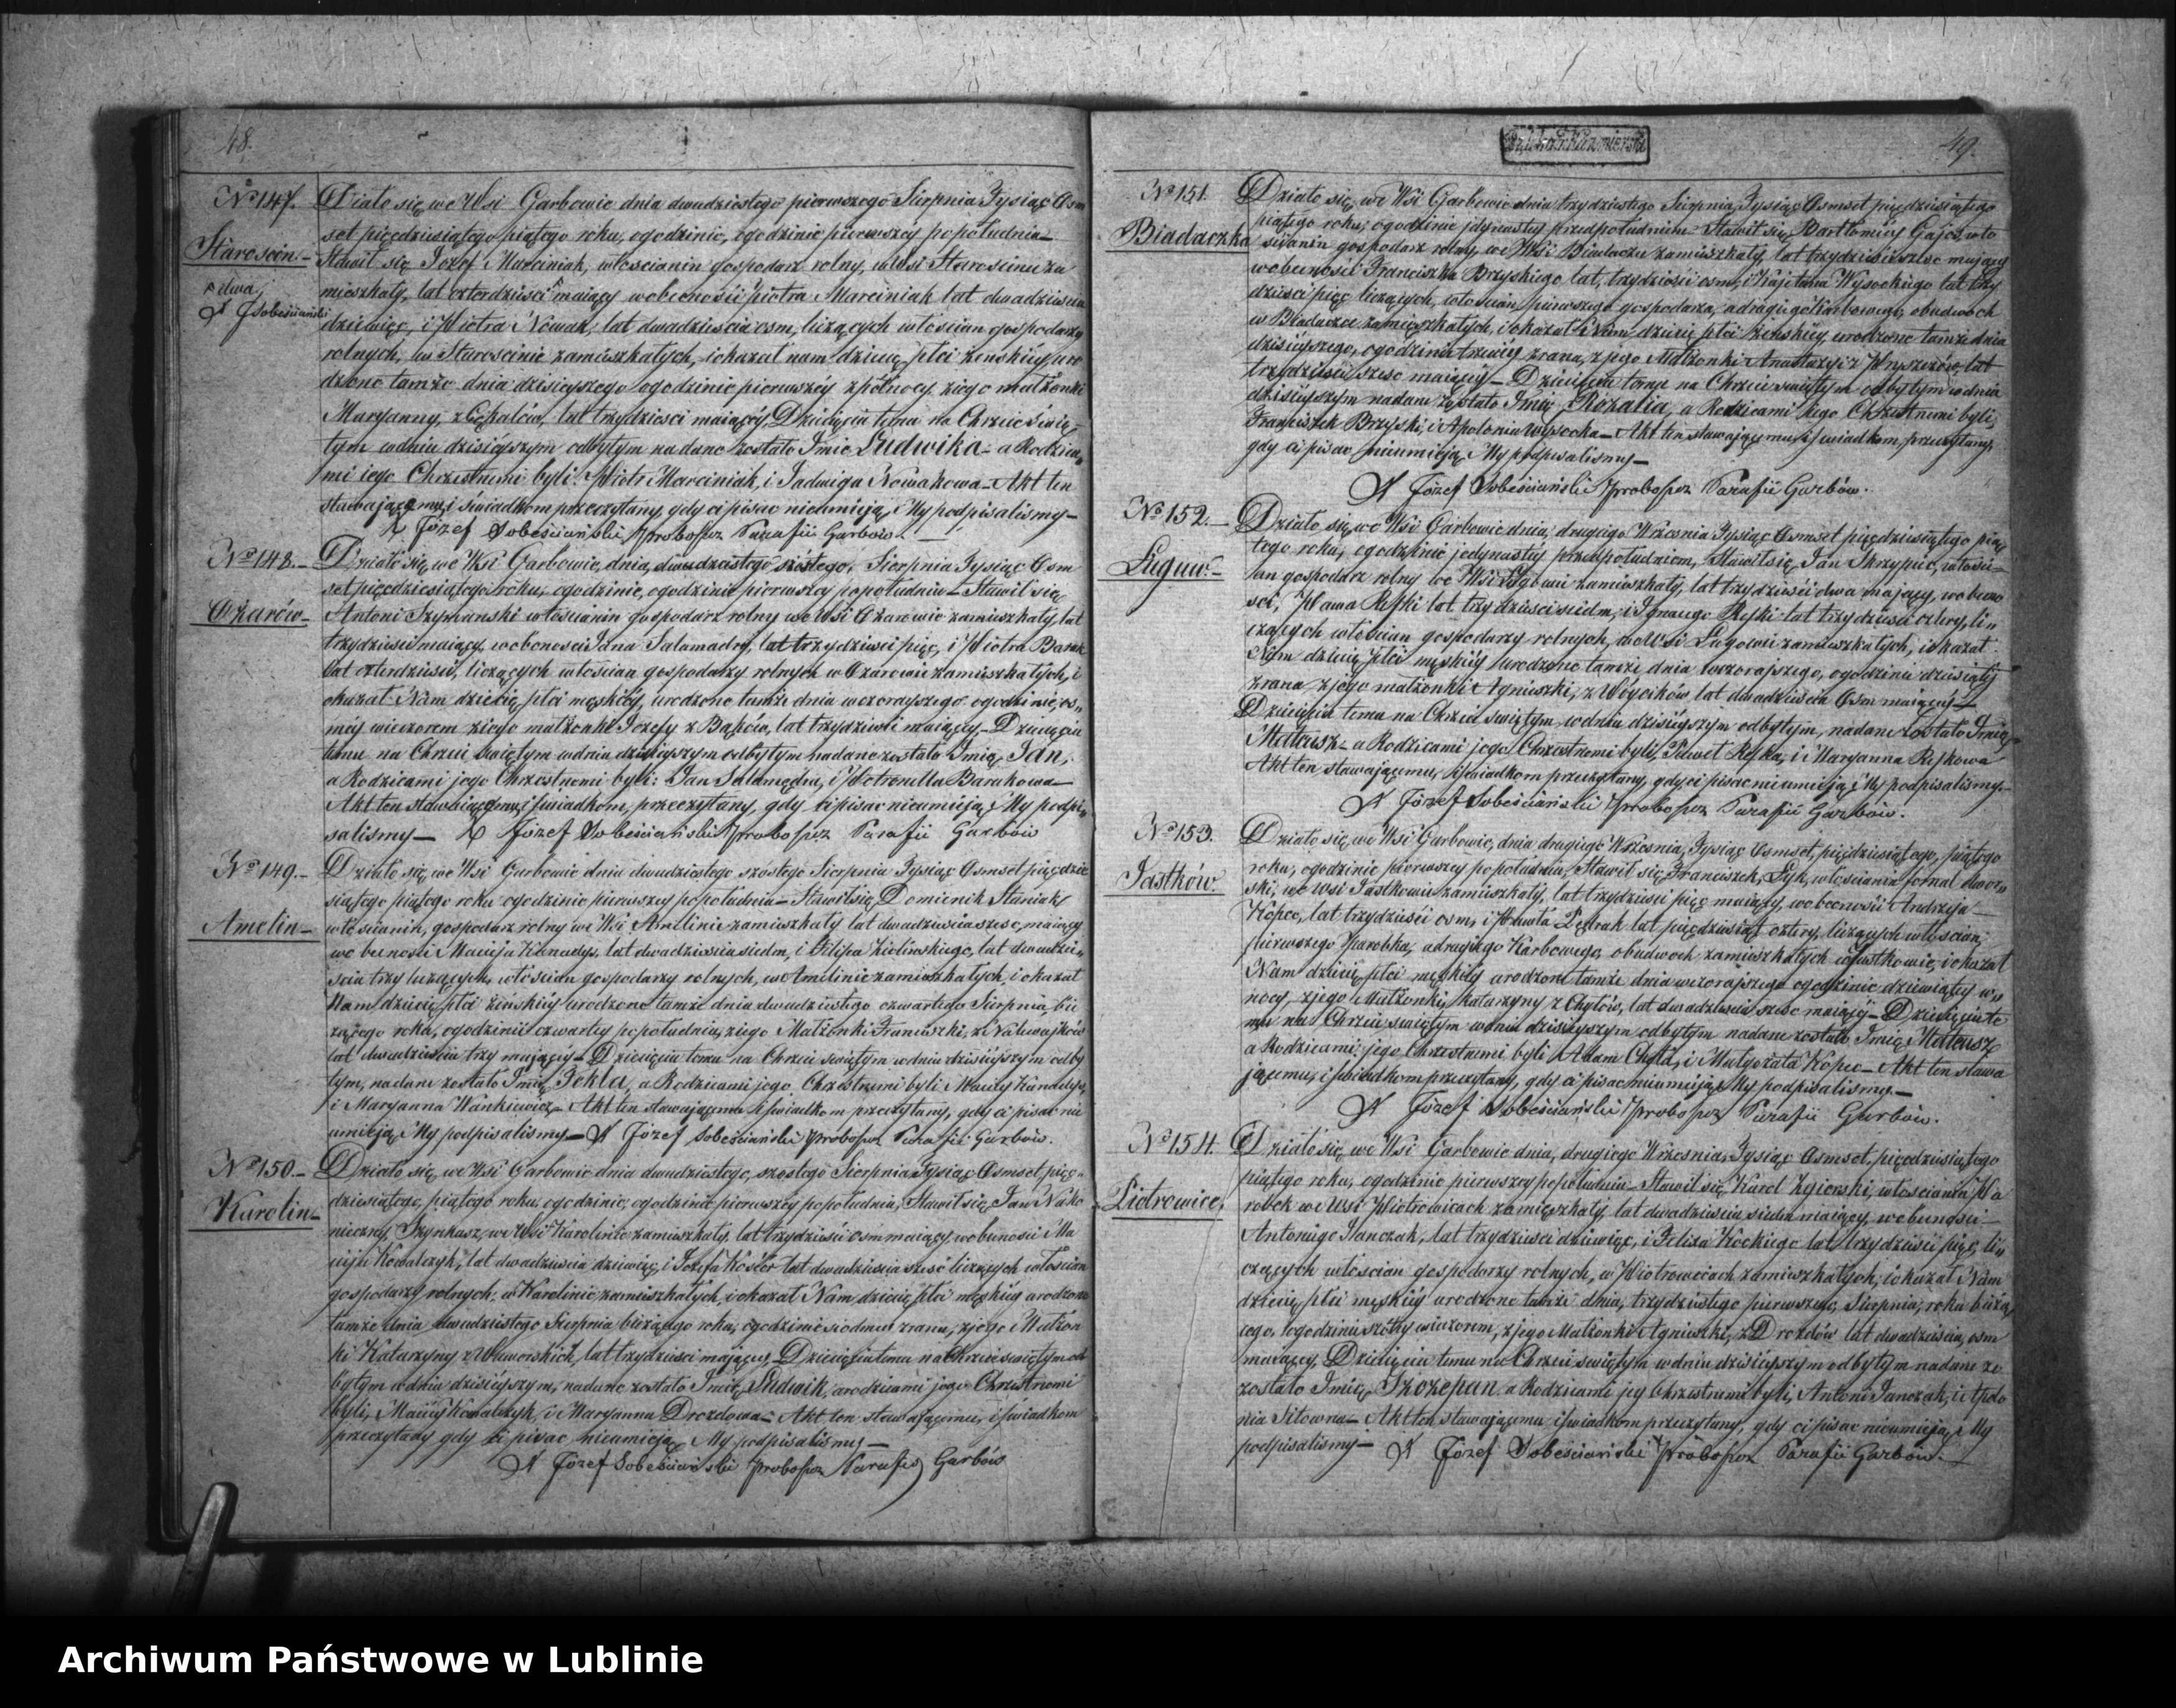 48.
No 147.
Starościn.
dwa,
X J Sobeściański
Działo się we Wsi Garbowie dnia dwudziestego pierwszego Sierpnia Tysiąc Osm
set pięcdziesiątego piątego roku, ogodzinie, ogodzinie pierwszey popołudnia
Stawił się Jozef Marciniak, włoscianin gospodarz rolny, wWsi Starościnie za
mieszkały, lat czterdziesci maiący wobecności Piotra Marciniak lat dwadziescia
dziewięc, i Piotra Nowak, lat dwadziescia osm, liczących włoscian gospodarzy
rolnych, w Starościnie zamieszkałych, iokazał nam dziecię płci zenskiey uro
dzone tamże dnia dzisieyszego ogodzinie pierwszéy zpółnocy ziego małżonki
Maryanny, z lat trzydziesci maiącéy, Dziecięciu temu na Chrzcie Świę
tym wdniu dzisieyszym odbytym nadane zostało Imie Ludwika a Rodzica
mi iego Chrzestnemi byli: Piotr Marciniak, i Jadwiga Nowakowa Akt ten
stawaiącemu i świadkom przeczytany, gdy ci pisac nieumieją, My podpisalismy
X Józef Sobeściański Proboszcz Parafii Garbów.
No 148.
Ożarów
Działo się we Wsi Garbowie, dnia, dwudziestego szóstego, Sierpnia Tysiąc Osm
set pięcdziesiątego roku, ogodzinie, ogodzinie pierwszey popołudniu Stawił się
Antoni Szymanski włoscianin gospodarz rolny we Wsi Ożarowie zamieszkały, lat
trzydziesci maiący, wobecnosci Jana Salamadry, lat trzydziesci pięc, i Piotra Barak
lat czterdziesci, liczących włoscian gospodarzy rolnych w Ożarowie zamieszkałych, i
okazał Nam dziecię płci męskiéy, urodzone tamże dnia wczorayszego ogodzinie os
méy wieczorem ziego małżonki Jozefy z Bąków, lat trzydziesci maiącey, Dziecięciu
temu na Chrzcie Swiętym wdniu dzisieyszym odbytym nadane zostało Imię Jan,
a Rodzicami jego Chrzestnemi byli: Jan Salamędra, i Petronella Barakowa
Akt ten stawaiącemu i swiadkom, przeczytany, gdy ci pisac nieumieją My podpi
salismy X Józef Sobeściański Proboszcz Parafii Garbów
No 149.
Amelin
Działo się we Wsi Garbowie dnia dwudziestego szostego Sierpnia Tysiąc Osmset pięcdzie
siątego piątego roku ogodzinie pierwszey popołudnia Stawił się Domienik Staniak
włoscianin, gospodarz rolny we Wsi Amelinie zamieszkały lat dwadziescia szesc, maiący
wobecnosci Macieja Kanadys, lat dwadziescia siedm, i Filipa Zielińskiego, lat dwadzie
scia trzy liczących, włoscian gospodarzy rolnych, we Amelinie zamieszkałych, i okazał
Nam dziecię płci żeńskiéy urodzone tamże dnia dwudziestego czwartego Sierpnia bie
zącego roku, ogodzinie czwartey popołudniu, ziego Małżonki Franciszki, z Nalewajków
lat dwadziescia trzy mającéy Dziecięciu temu na Chrzcie swiętym wdniu dzisieyszym odby
tym, nadane zostało Imię Tekla, a Rodzicami jego Chrzestnemi byli Maciéy Kanadys,
i Maryanna Wankiewicz Akt ten stawającemu i swiadkom przeczytany, gdy ci pisac nie
umieją, My podpisalismy X Józef Sobeściański Proboszcz Parafii Garbów.
No 150.
Karolin
Działo się, we Wsi Garbowie dnia dwudziestego, szostego Sierpnia Tysiąc Osmset pięc
dziesiątego, piątego roku, ogodzinie, ogodzinie pierwszéy popołudnia, Stawił się Jan Nako
nieczny, Szynkarz, we Wsi Karolinie zamieszkały, lat trzydziesci osm maiący, wobecnosci Ma
cieja Kowalczyk, lat dwadziescia dziewięc, i Jozefa Kościor lat dwadziescia szesc liczących włoscian
gospodarzy rolnych, w Karolinie zamieszkałych, i okazał Nam dziecię płci męskiéy urodzone
tamże dnia dwudziestego Sierpnia bieżącego roku, ogodzinie siodmey zrana, zjego Małżon
ki Katarzyny z Waworskich, lat trzydziesci mającey, Dziecięciu temu na Chrzcie swiętym od
bytym wdniu dzisieyszym, nadane zostało Imię Ludwik, arodzicami jego Chrzestnemi
byli, Maciéy Kowalczyk, i Maryanna Drozdowa Akt ten stawającemu, i swiadkom
przeczytany gdy ci pisac nieumieją, My podpisalismy
X Józef Sobeściański Proboszcz Parafii Garbów
49.
No 151.
Biadaczka
Działo się, we Wsi Garbowie dnia trzydziestego Sierpnia, Tysiąc Osmset pięcdziesiątego
piątego roku, ogodzinie jedynastey przedpołudniem Stawił się, Bartłomiéy Gajos, wło
scianin gospodarz rolny, we Wsi Biadaczce zamieszkały, lat trzydziesci szesc mający
wobecności Franciszka Brzyskiego lat, trzydziesci osm, i Kajetana Wysockiego lat trzy
dziesci pięc liczących, włoscian, pierwszego gospodarza, adrugiego karbowego, obudwoch
w Biadaczce zamieszkałych, i okazał Nam dziecię płci żenskiéy, urodzone tamże dnia
dzisieyszego, ogodzinie trzeciéy zrana, z jego Małżonki Anastazyi z lat
trzydziesci szesc maiącéy Dziecięciu temu na Chrzcie swiętym odbytym wdniu
dzisieyszym nadane zostało Imię Rozalia, a Rodzicami jego Chrzestnemi byli,
Franciszek Brzyski, i Apolonia Wysocka Akt ten stawającemu i swiadkom, przeczytany,
gdy ci pisac nieumieją, My podpisalismy
X Józef Sobeściański Proboszcz Parafii Garbów.
No 152.
Ługów.
Działo się, we Wsi Garbowie dnia, drugiego Wrzesnia Tysiąc Osmset pięcdziesiątego pią
tego roku, ogodzinie jedynastéy przedpołudniem, Stawił się, Jan Skrzypiec, włosci
an gospodarz rolny we Wsi Ługowie zamieszkały, lat trzydziesci dwa mający, wobecno
sci, Pawa Refki lat trzydziesci siedm, i Ignacego Refki lat trzydziesci cztery, li
czących włoscian gospodarzy rolnych, we Wsi Ługowie zamieszkałych, iokazał
Nam dziecię płci męskiéy urodzone tamże dnia wczorajszego, ogodzinie dziesiątéy
zrana zjego małżonki Agnieszki, z Wóycików lat dwadziescia Osm maiącéy
Dziecięciu temu na Chrzcie swiętym, wdniu dzisieyszym odbytym, nadane zostało Imię
Mateusz a Rodzicami jego Chrzestnemi byli, Paweł Refka, i Maryanna Refkowa
Akt ten stawającemu, i swiadkom przeczytany, gdy ci pisac nieumieją My podpisalismy.
X Józef Sobeściański Proboszcz Parafii Garbów.
No 153.
Jastków.
Działo się, we Wsi Garbowie, dnia drugiego Wrzesnia, Tysiąc Osmset, pięcdziesiątego, piątego
roku, ogodzinie pierwszey popołudniu, Stawił się Franciszek, Dyk, włoscianin fornal dwor
ski, we Wsi Jastkowie zamieszkały, lat trzydziesci pięc maiący, wobecnosci Andrzeja
Kopec, lat trzydziesci osm, i Pawła Pędrak lat pięcdziesiąt cztery, liczących włoscian,
pierwszego Parobka, adrugiego Karbowego, obudwoch zamieszkałych wJastkowie, iokazał
Nam dziecię płci męskiéy urodzone tamże dnia wczorajszego ogodzinie dziewiątey w
nocy, zjego Małżonki, Katarzyny z Chyłów, lat dwadziescia szesc maiącéy Dziecięciu te
mu na Chrzcie swiętym wdniu dzisieyszym odbytym nadane zostało Imię Mateusz
a Rodzicami jego Chrzestnemi byli Adam Chyła, i Małgorzata Kopec Akt ten stawa
jącemu, i swiadkom przeczytany, gdy ci pisac nieumieją My podpisalismy.
X Józef Sobeściański Proboszcz Parafii Garbów.
No 154.
Piotrowice.
Działo się, we Wsi Garbowie dnia, drugiego Wrzesnia, Tysiąc Osmset, pięcdziesiątego
piątego roku, ogodzinie pierwszey popołudniu Stawił się Karol Zgierski, włoscianin Pa
robek we Wsi Piotrowicach zamieszkały, lat dwadziescia siedm maiący, wobecnosci
Antoniego Janczak, lat trzydziesci dziewięc, i Felixa Kockiego lat trzydziesci pięc, li
czących włoscian gospodarzy rolnych, w Piotrowicach zamieszkałych, iokazał Nam
dziecię płci męskiéy urodzone tamże dnia, trzydziestego pierwszego, Sierpnia, roku bieżą
cego, ogodzinie szóstey wieczorem, z jego Małżonki Agnieszki, z Drozdów lat dwadziescia, osm
maiącey, Dziecięciu temu na Chrzcie swiętym wdniu dzisieyszym odbytym nadane zo
zostało Imię, Szczepan a Rodzicami jey Chrzestnemi byli, Antoni Janczak, i Apolo
nia Sitowna Akt ten stawającemu i swiadkom przeczytany, gdy ci pisac nieumieją, My
podpisalismy X Józef Sobeściański Proboszcz Parafii Garbów.
Archiwum Państwowe w Lublinie